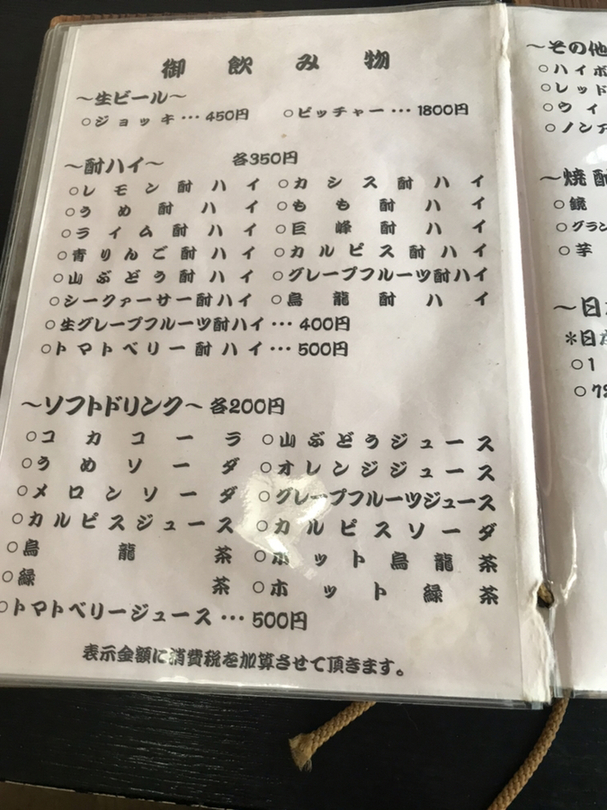 御飲み物
～生ビール～
○ジョッキ…450円 ○ピッチャー…1800円
～酎ハイ～ 各350円
○レモン酎ハイ ○カシス酎ハイ
○うめ酎ハイ ○もも酎ハイ
○ライム酎ハイ ○巨峰酎ハイ
○青りんご酎ハイ ○カルピス酎ハイ
○山ぶどう酎ハイ ○グレープフルーツ酎ハイ
○シークァーサー酎ハイ ○烏龍酎ハイ
○生グレープフルーツ酎ハイ…400円
○トマトベリー酎ハイ…500円
～ソフトドリンク～ 各200円
○コカコーラ ○山ぶどうジュース
○うめソーダ ○オレンジジュース
○メロンソーダ ○グレープフルーツジュース
○カルピスジュース ○カルピスソーダ
○烏龍茶 ○ホット烏龍茶
○緑茶 ○ホット緑茶
○トマトベリージュース…500円
表示金額に消費税を加算させて頂きます。
～その他
○ハイボ
○レッド
○ウィ
○ノンア
～焼酎
○鏡
○グラン
○芋
～日
＊日
○1